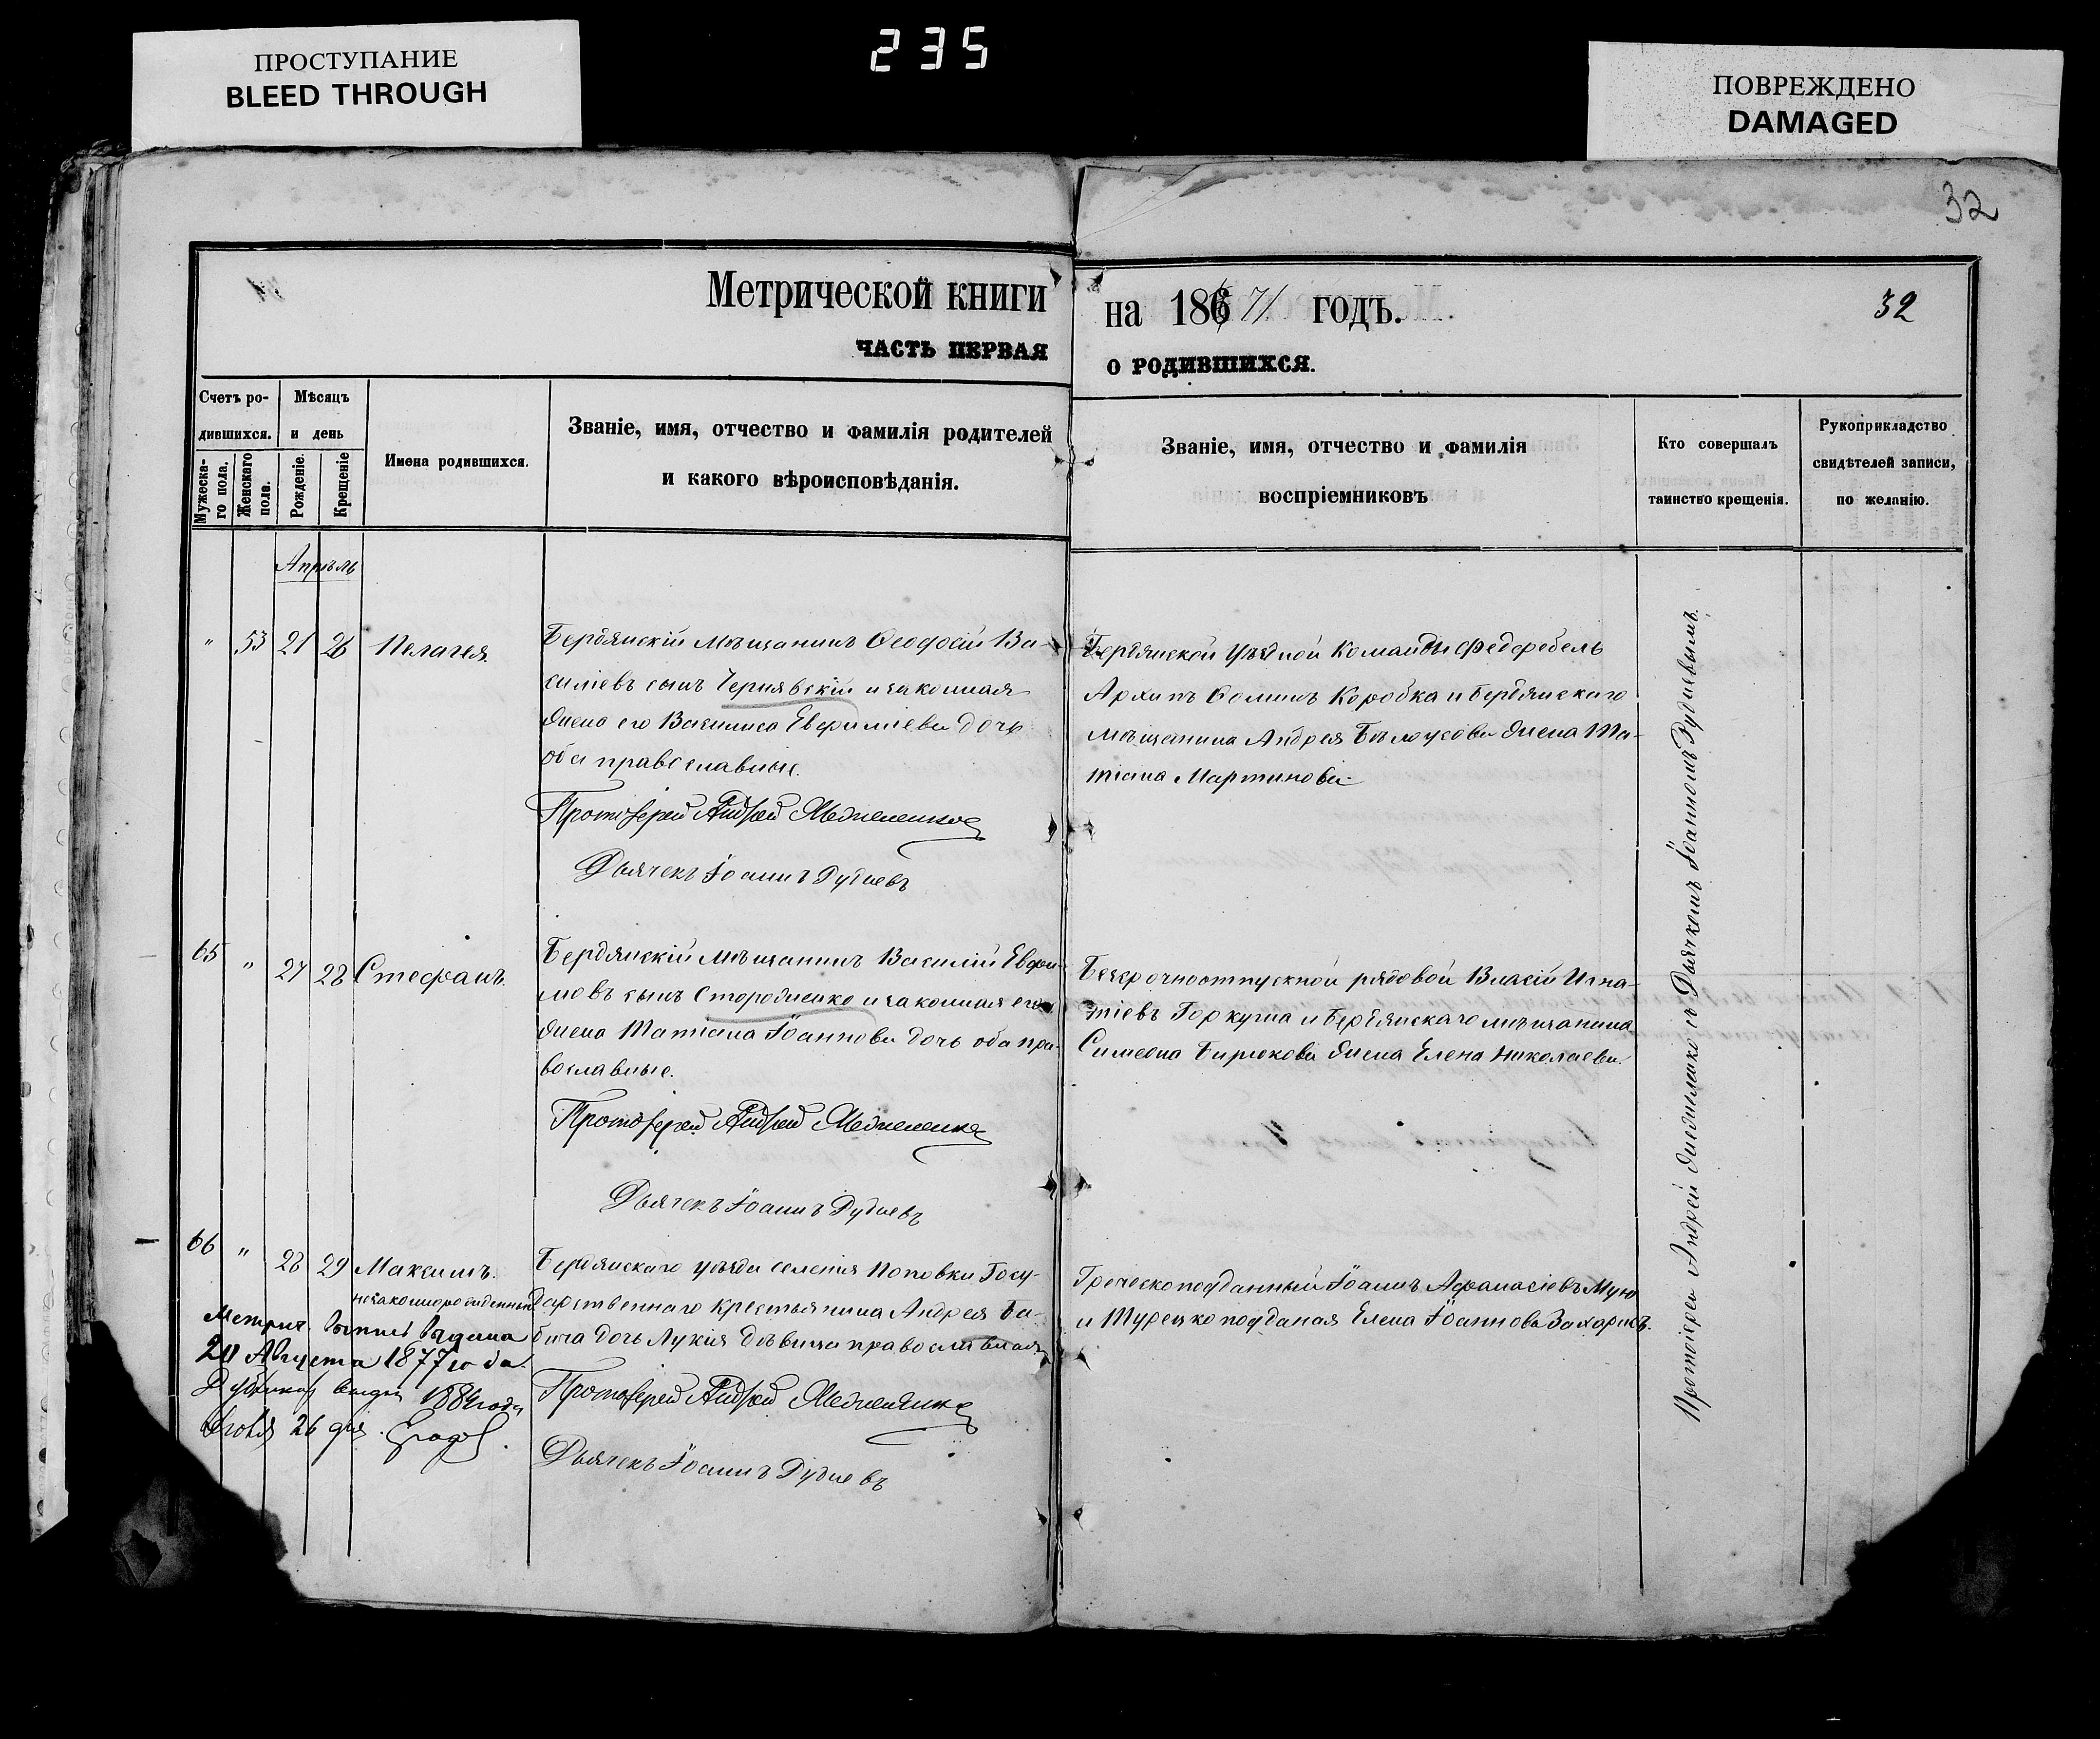 ПРОСТУПАНИЕ
BLEED THROUGH
235
ПОВРЕЖДЕНО
DAMAGED
32
Метрической книги на 1871 годъ.
32
ЧАСТЬ ПЕРВАЯ О РОДИВШИХСЯ.
Счетъ ро-
дившихся.
Мужеска-
го пола.
Женскаго
пола.
Мѣсяцъ
и день
Рожденіе.
Крещеніе
Имена родившихся.
Званіе, имя, отчество и фамилія родителей
и какого вѣроисповѣданія.
Званіе, имя, отчество и фамилія
воспріемниковъ
Кто совершалъ
таинство крещенія.
Рукоприкладство
свидѣтелей записи,
по желанію.
Апрѣль
" 53 21 26 Пелагея.
Бердянскій мѣщанинъ Ѳеодосій Ва-
силіевъ сынъ Чернявскій и законная
жена его Василиса Евфиміева дочь
оба православные.
Протоіерей Андрей
Дьячекъ Іоаннъ Рудневъ
Бердянской уѣздной команды фелдфебель
Архипъ Ѳоминъ Коробка и бердянскаго
мѣщанина Андрея Бѣлоусова жена Та-
тіана Мартинова
65 " 27 28 Стефанъ.
Бердянскій мѣщанинъ Василій Евфи-
мовъ сынъ Стороженко и законная его
жена Татіана Іоаннова дочь оба пра-
вославные.
Протоіерей Андрей
Дьячекъ Іоаннъ Рудневъ
Безсрочноотпускной рядовой Власій Игна-
тіевъ Горкуша и бердянскаго мѣщанина
Симеона Бирюкова жена Елена Николаева
66 " 28 29 Максимъ.
незаконнорожденный
Бердянскаго уѣзда селенія Поповки Госу-
дарственнаго крестьянина Андрея Ба-
бича дочь Лукія дѣвица православная
Протоіерей Андрей
Дьячекъ Іоаннъ Рудневъ
Греческоподданный Іоаннъ Афанасіевъ
и Турецкоподданая Елена Іоаннова
Метрич. выпись выдана
20 Августа 1877 года.
1884 года
26 дня.
Протоіерей Андрей съ Дьячкомъ Іоанномъ Рудневымъ.